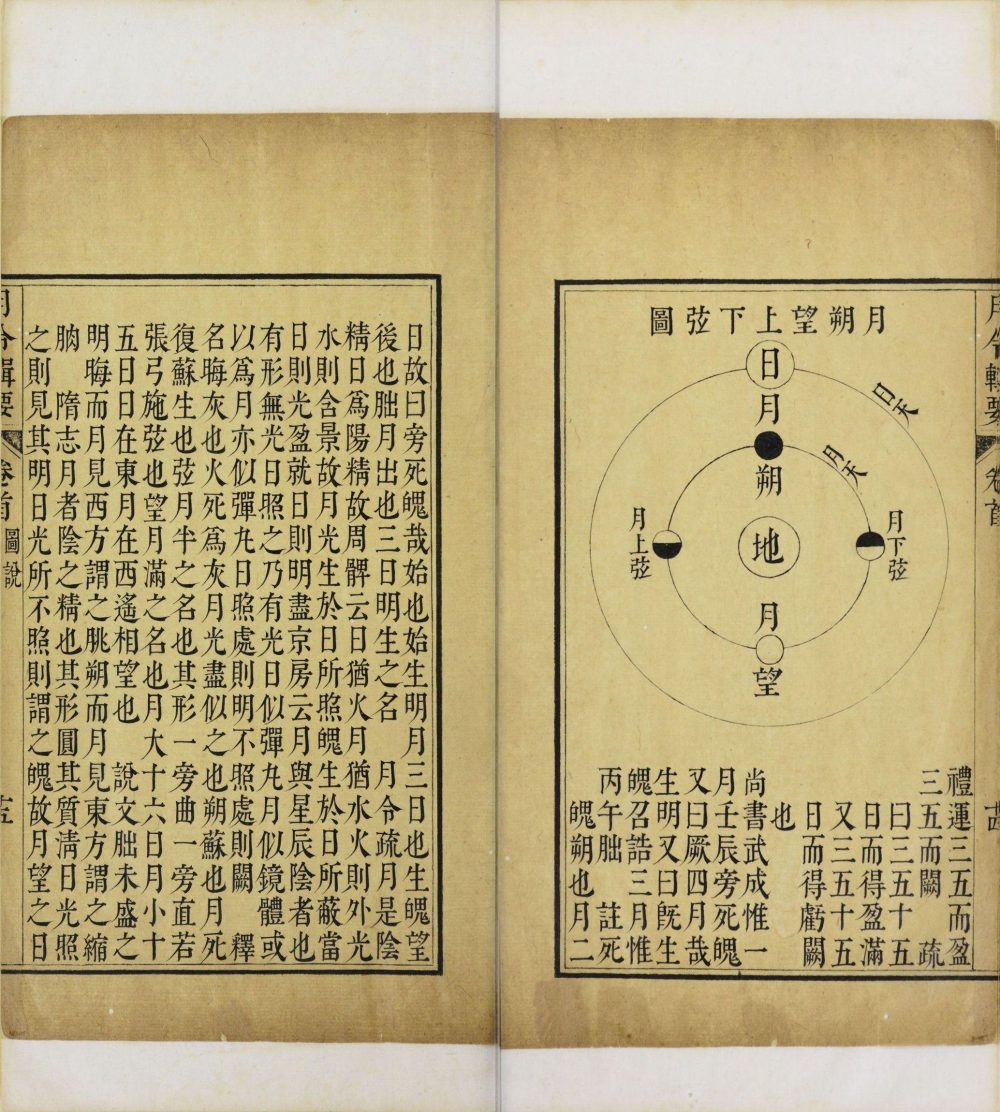 月令輯要
卷首
月朔望上下弦圖
日
日天
月
朔
月天
月下弦
地
月上弦
月
望
禮運三五而盈
三五而闕 疏
曰三五十五
日而得盈滿
又三五十五
日而得虧闕
也
尚書武成惟一
月壬辰旁死魄
又曰厥四月哉
生明又曰旣生
魄召誥三月惟
丙午朏 註死
魄朔也月二
日故曰旁死魄哉始也始生明月三日也生魄望
後也朏月出也三日明生之名 月令疏月是陰
精日爲陽精故周髀云日猶火月猶水火則外光
水則含景故月光生於日所照魄生於日所蔽當
日則光盈就日則明盡京房云月與星辰陰者也
有形無光日照之乃有光日似彈丸月似鏡體或
以爲月亦似彈丸日照處則明不照處則闕 釋
名晦灰也火死爲灰月光盡似之也朔蘇也月死
復蘇生也弦月半之名也其形一旁曲一旁直若
張弓施弦也望月滿之名也月大十六日月小十
五日日在東月在西遙相望也 說文朏未盛之
明晦而月見西方謂之朓朔而月見東方謂之縮
朒 隋志月者陰之精也其形圓其質清日光照
之則見其明日光所不照則謂之魄故月望之日
月令輯要
卷首
圖說